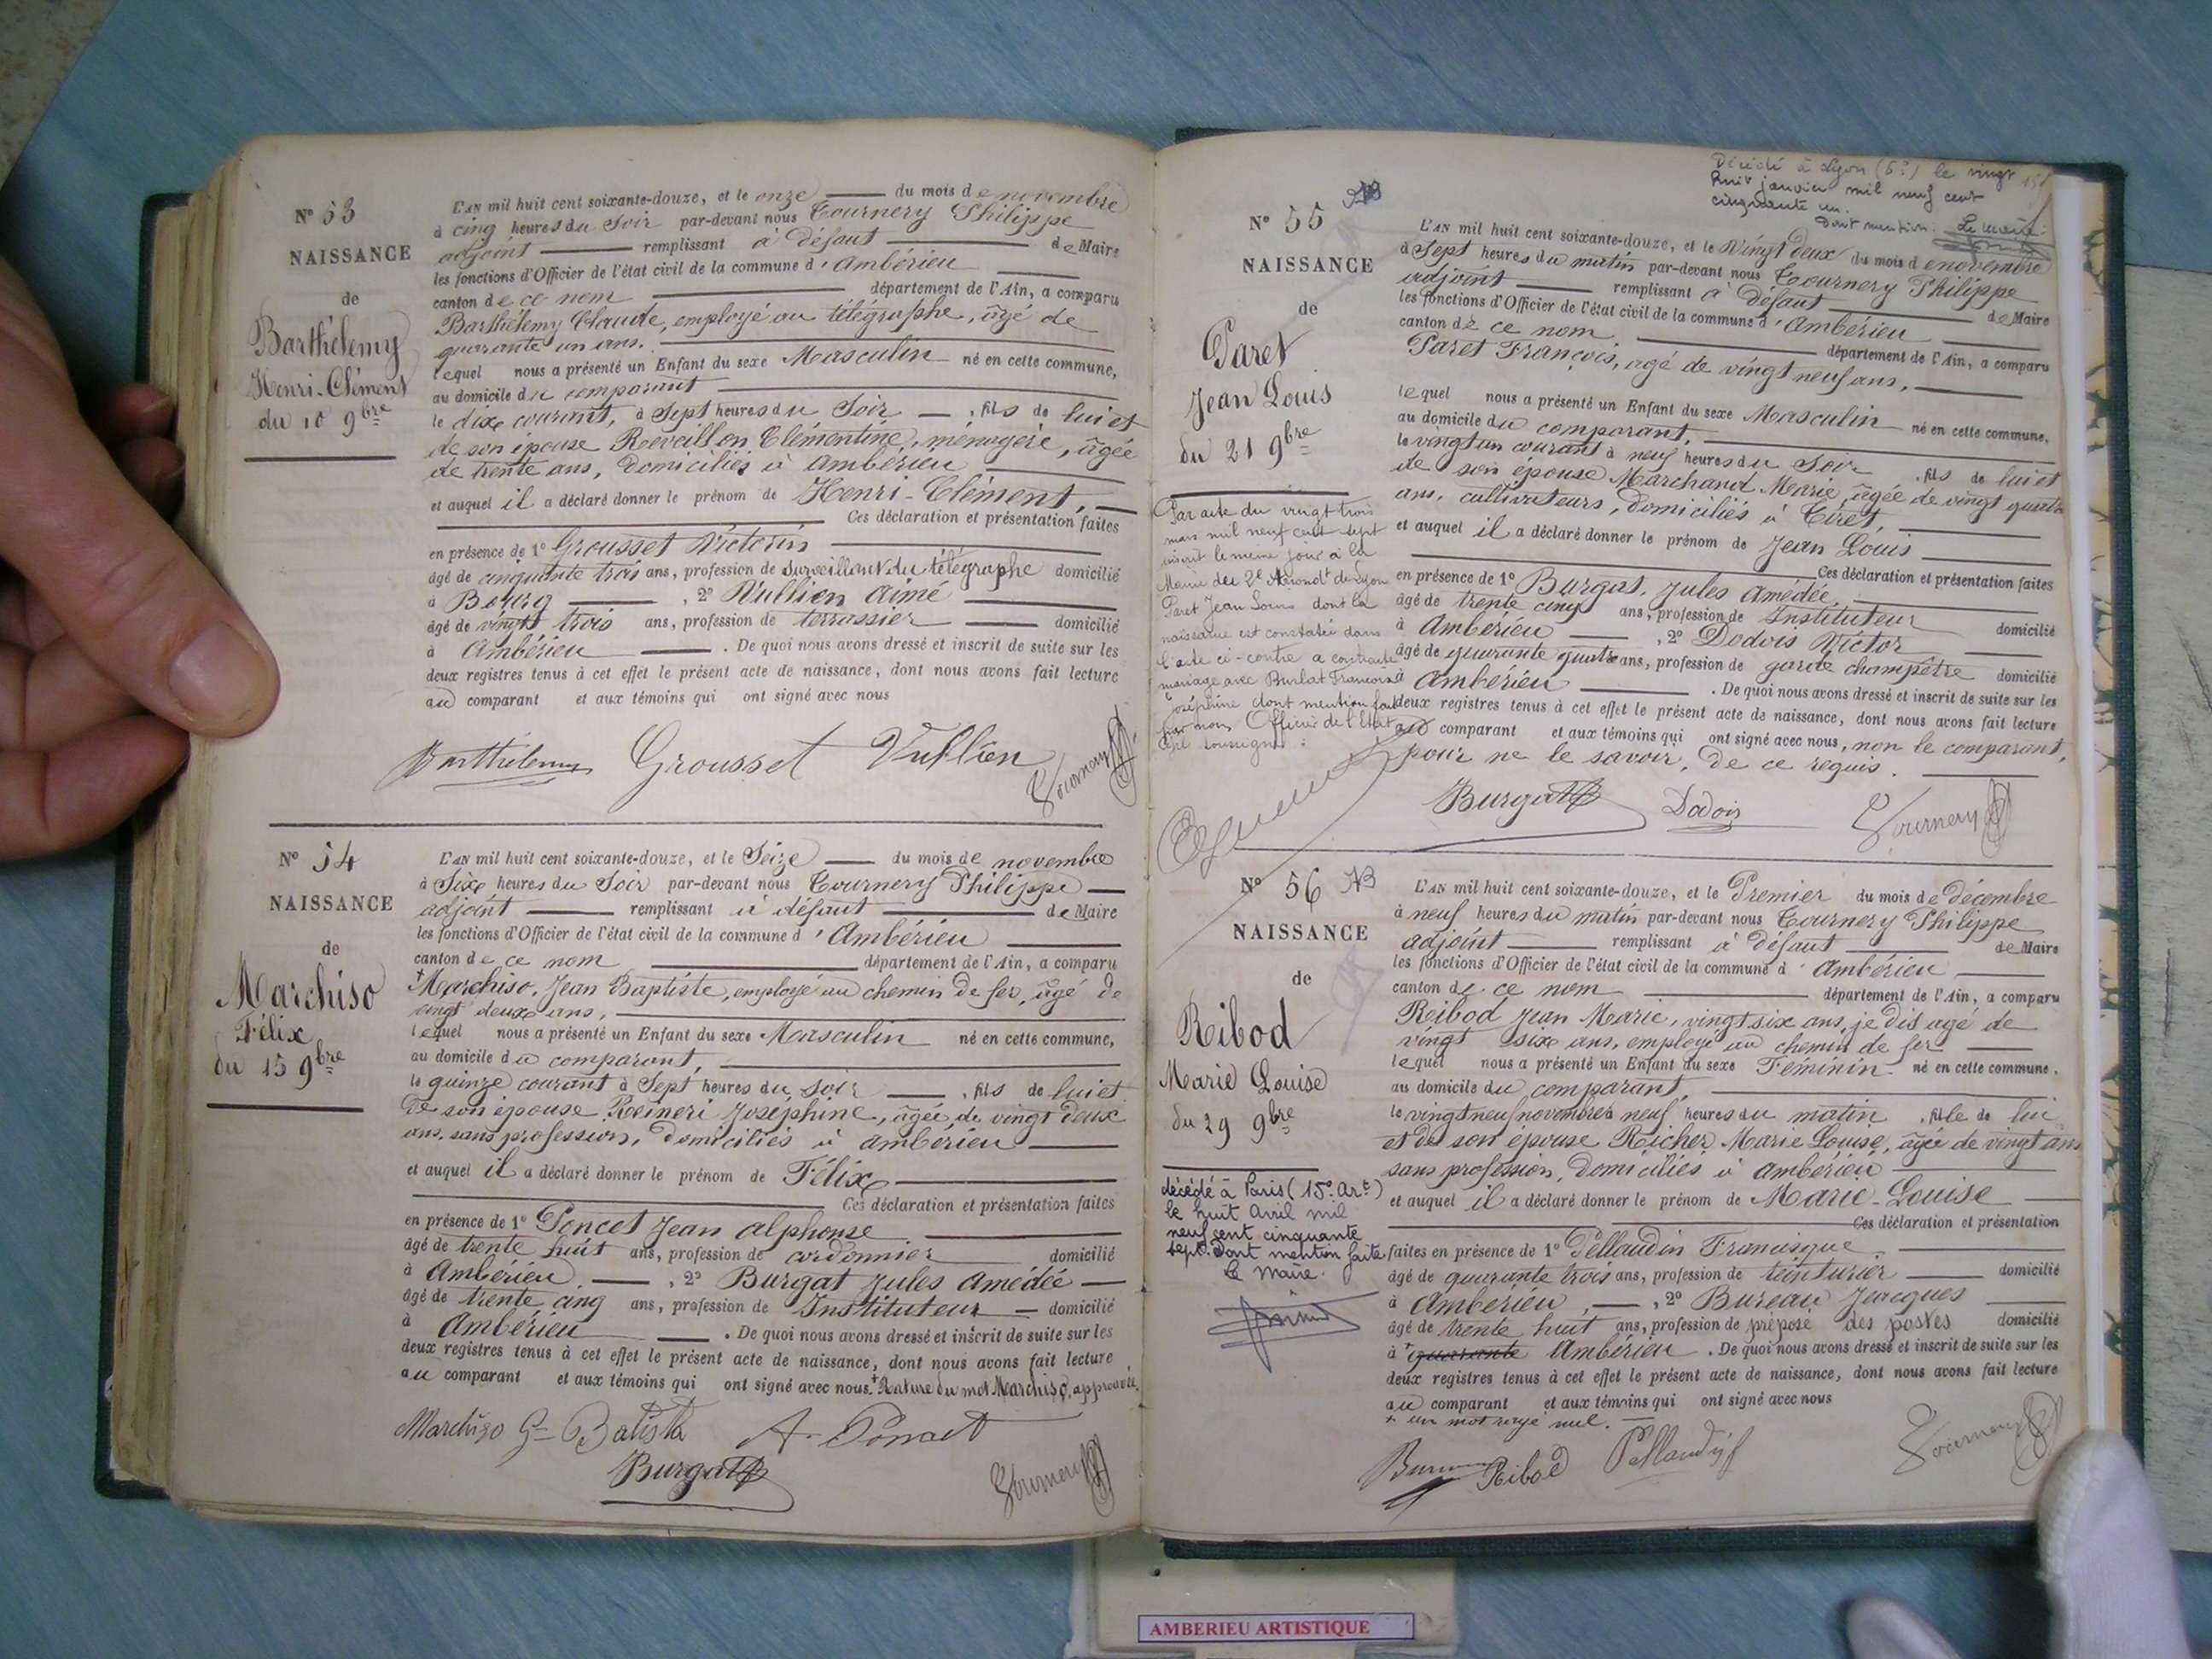 N° 53
NAISSANCE
de
Barthélemy
Henri-Clément
du 10 9bre
L'AN mil huit cent soixante-douze, et le onze du mois de novembre
à cinq heures du Soir par-devant nous Tournery Philippe
adjoint remplissant à défaut de Maire
les fonctions d'Officier de l'état civil de la commune d'Ambérieu
canton de ce nom département de l'Ain, a comparu
Barthélemy Claude, employé au télégraphe, âgé de
quarante un ans.
lequel nous a présenté un Enfant du sexe Masculin né en cette commune,
au domicile du comparant
le dix courant, à Sept heures du Soir, fils de lui et
de son épouse Reveillon Clémentine, ménagère, âgée
de trente ans, domiciliés à Ambérieu
et auquel il a déclaré donner le prénom de Henri-Clément,
Ces déclaration et présentation faites
en présence de 1° Grousset Victorin
âgé de cinquante trois ans, profession de surveillant du télégraphe domicilié
à Bourg, 2° Vullien Aimé
âgé de vingt trois ans, profession de terrassier domicilié
à Ambérieu. De quoi nous avons dressé et inscrit de suite sur les
deux registres tenus à cet effet le présent acte de naissance, dont nous avons fait lecture
au comparant et aux témoins qui ont signé avec nous
Barthélemy Grousset Vullien Tournery
N° 54
NAISSANCE
de
Marchiso
Félix
du 15 9bre
L'AN mil huit cent soixante-douze, et le Seize du mois de novembre
à Six heures du Soir par-devant nous Tournery Philippe
adjoint remplissant à défaut de Maire
les fonctions d'Officier de l'état civil de la commune d'Ambérieu
canton de ce nom département de l'Ain, a comparu
+Marchiso, Jean Baptiste, employé au chemin de fer, âgé de
vingt deux ans,
lequel nous a présenté un Enfant du sexe Masculin né en cette commune,
au domicile du comparant,
le quinze courant à Sept heures du soir, fils de lui et
de son épouse Reineri Joséphine, âgée de vingt deux
ans, sans profession, domiciliés à Ambérieu
et auquel il a déclaré donner le prénom de Félix
Ces déclaration et présentation faites
en présence de 1° Poncet Jean Alphonse
âgé de trente huit ans, profession de cordonnier domicilié
à Ambérieu, 2° Burgat Jules Amédée
âgé de trente cinq ans, profession de Instituteur domicilié
à Ambérieu. De quoi nous avons dressé et inscrit de suite sur les
deux registres tenus à cet effet le présent acte de naissance, dont nous avons fait lecture
au comparant et aux témoins qui ont signé avec nous. + Rature du mot Marchiso, approuvée.
Marchizo Gn Batista A. Poncet
Burgat Tournery
Décédé à Lyon (5e) le vingt
huit janvier mil neuf cent
cinquante un.
Dont mention. Le maire:
N° 55
NAISSANCE
de
Paret
Jean Louis
du 21 9bre
Par acte du vingt trois
mars mil neuf cent sept
inscrit le même jour à la
Mairie du 2e Arrondt de Lyon
Paret Jean Louis dont la
naissance est constatée dans
l'acte ci-contre a contracté
mariage avec Burlat Françoise
Joséphine dont mention faite
par nous Officier de l'Etat
Civil soussigné :
L'AN mil huit cent soixante-douze, et le Vingt deux du mois de novembre
à Sept heures du matin par-devant nous Tournery Philippe
adjoint remplissant à défaut de Maire
les fonctions d'Officier de l'état civil de la commune d'Ambérieu
canton de ce nom département de l'Ain, a comparu
Paret François, âgé de vingt neuf ans,
lequel nous a présenté un Enfant du sexe Masculin né en cette commune,
au domicile du comparant,
le vingt un courant à neuf heures du Soir, fils de lui et
de son épouse Marchand Marie, âgée de vingt quatre
ans, cultivateurs, domiciliés à Tiret,
et auquel il a déclaré donner le prénom de Jean Louis
Ces déclaration et présentation faites
en présence de 1° Burgat, Jules Amédée,
âgé de trente cinq ans, profession de Instituteur domicilié
à Ambérieu, 2° Dodois Victor
âgé de quarante quatre ans, profession de garde champêtre domicilié
à Ambérieu. De quoi nous avons dressé et inscrit de suite sur les
deux registres tenus à cet effet le présent acte de naissance, dont nous avons fait lecture
au comparant et aux témoins qui ont signé avec nous, non le comparant,
pour ne le savoir, de ce requis.
Burgat Dodois Tournery
N° 56
NAISSANCE
de
Ribod
Marie Louise
du 29 9bre
décédé à Paris (15e Art)
le huit Avril mil
neuf cent cinquante
sept. Dont mention faite
Le maire.
L'AN mil huit cent soixante-douze, et le Premier du mois de décembre
à neuf heures du matin par-devant nous Tournery Philippe
adjoint remplissant à défaut de Maire
les fonctions d'Officier de l'état civil de la commune d'Ambérieu
canton de ce nom département de l'Ain, a comparu
Ribod Jean Marie, vingt six ans, je dis âgé de
vingt six ans, employé au chemin de fer
lequel nous a présenté un Enfant du sexe Féminin né en cette commune,
au domicile du comparant,
le vingt neuf novembre à neuf heures du matin, fille de lui
et de son épouse Richer Marie Louise, âgée de vingt ans
sans profession, domiciliés à Ambérieu
et auquel il a déclaré donner le prénom de Marie-Louise
Ces déclaration et présentation
faites en présence de 1° Pellaudin Francisque
âgé de quarante trois ans, profession de teinturier domicilié
à Ambérieu, 2° Bureau Jacques
âgé de trente huit ans, profession de préposé des postes domicilié
à + quarante Ambérieu. De quoi nous avons dressé et inscrit de suite sur les
deux registres tenus à cet effet le présent acte de naissance, dont nous avons fait lecture
au comparant et aux témoins qui ont signé avec nous
+ un mot rayé nul.
Bureau Ribod Pellaudin Tournery
AMBERIEU ARTISTIQUE